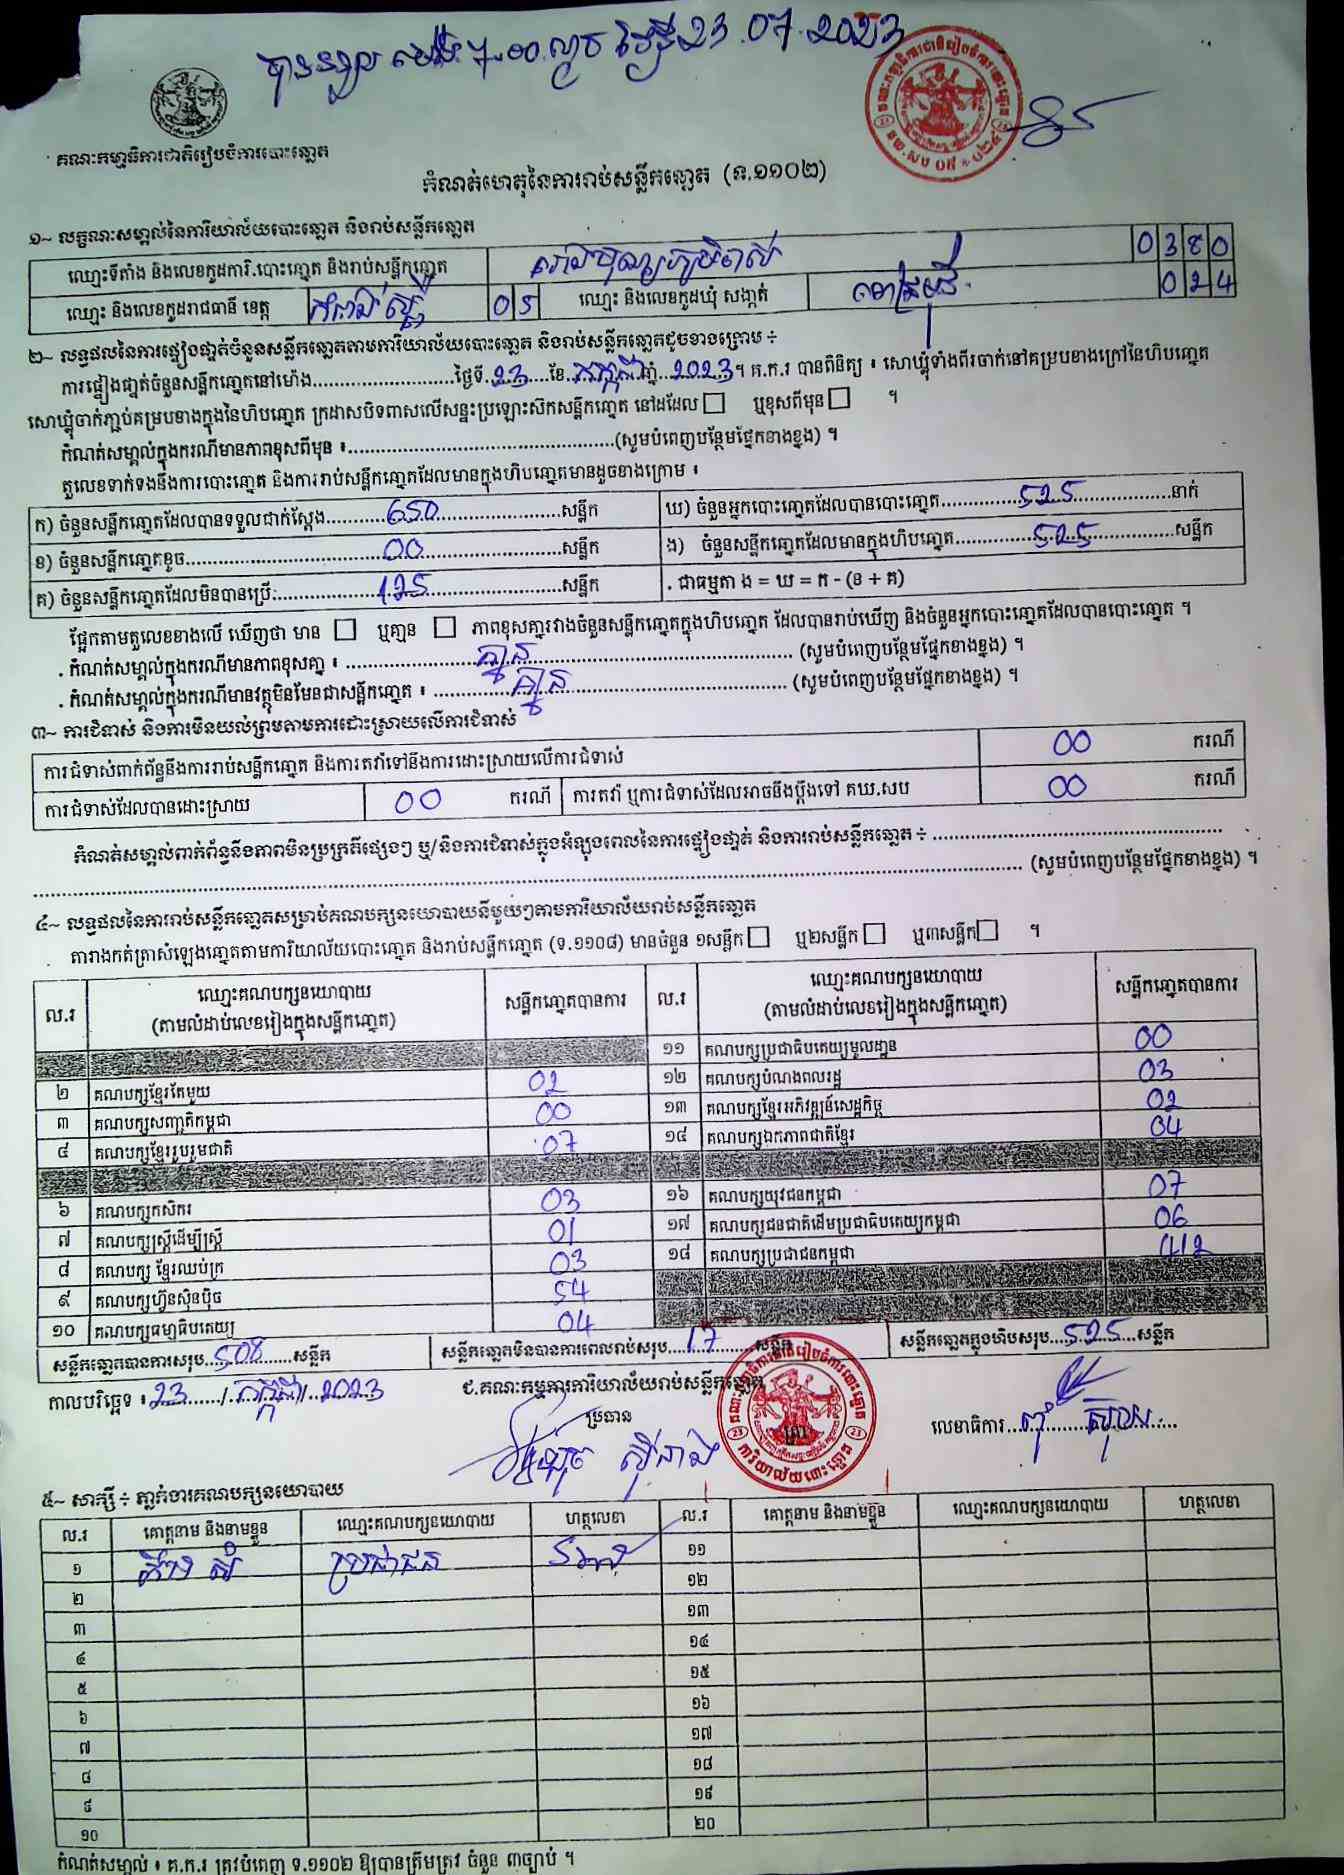 23.07.2023
គណៈកម្មាធិការជាតិរៀបចំការបោះឆ្នោត
កំណត់ហេតុនៃការរាប់សន្លឹកឆ្នោត (ទ.១១០២)
១~ លក្ខណៈសម្គាល់នៃការិយាល័យបោះឆ្នោត និងរាប់សន្លឹកឆ្នោត
ឈ្មោះទីតាំង និងលេខកូដការិ.បោះឆ្នោត និងរាប់សន្លឹកឆ្នោត 0380
ឈ្មោះ និងលេខកូដរាជធានី ខេត្ត កំពង់ស្ពឺ 05 ឈ្មោះ និងលេខកូដឃុំ សង្កាត់ 024
២~ លទ្ធផលនៃការផ្ទៀងផ្ទាត់ចំនួនសន្លឹកឆ្នោតតាមការិយាល័យបោះឆ្នោត និងរាប់សន្លឹកឆ្នោតដូចខាងក្រោម ÷
ការផ្ទៀងផ្ទាត់ចំនួនសន្លឹកឆ្នោតនៅម៉ោង..........ថ្ងៃទី.23...ខែ.កក្កដា.ឆ្នាំ..2023។ គ.ក.រ បានពិនិត្យ ៖ សោឃ្លុំទាំងពីរចាក់នៅគម្របខាងក្រៅនៃហិបឆ្នោត
សោឃ្លុំចាក់ភ្ជាប់គម្របខាងក្នុងនៃហិបឆ្នោត ក្រដាសបិទពាសលើសន្ទះប្រឡោះស៊កសន្លឹកឆ្នោត នៅដដែល □ ឬខុសពីមុន □ ។
កំណត់សម្គាល់ក្នុងករណីមានភាពខុសពីមុន ៖..........(សូមបំពេញបន្ថែមផ្នែកខាងខ្នង) ។
តួលេខទាក់ទងនឹងការបោះឆ្នោត និងការរាប់សន្លឹកឆ្នោតដែលមានក្នុងហិបឆ្នោតមានដូចខាងក្រោម ៖
ក) ចំនួនសន្លឹកឆ្នោតដែលបានទទួលជាក់ស្តែង.....650.....សន្លឹក ឃ) ចំនួនអ្នកបោះឆ្នោតដែលបានបោះឆ្នោត.....525.....នាក់
ខ) ចំនួនសន្លឹកឆ្នោតខូច.....00.....សន្លឹក ង) ចំនួនសន្លឹកឆ្នោតដែលមានក្នុងហិបឆ្នោត.....525.....សន្លឹក
គ) ចំនួនសន្លឹកឆ្នោតដែលមិនបានប្រើ:.....125.....សន្លឹក . ជាធម្មតា ង = ឃ = ក - (ខ + គ)
ផ្អែកតាមតួលេខខាងលើ ឃើញថា មាន □ ឬគ្មាន □ ភាពខុសគ្នារវាងចំនួនសន្លឹកឆ្នោតក្នុងហិបឆ្នោត ដែលបានរាប់ឃើញ និងចំនួនអ្នកបោះឆ្នោតដែលបានបោះឆ្នោត ។
. កំណត់សម្គាល់ក្នុងករណីមានភាពខុសគ្នា ៖ .....គ្មាន..... (សូមបំពេញបន្ថែមផ្នែកខាងខ្នង) ។
. កំណត់សម្គាល់ក្នុងករណីមានវត្ថុមិនមែនជាសន្លឹកឆ្នោត ៖ .....គ្មាន..... (សូមបំពេញបន្ថែមផ្នែកខាងខ្នង) ។
៣~ ការជំទាស់ និងការមិនយល់ព្រមតាមការដោះស្រាយលើការជំទាស់
ការជំទាស់ពាក់ព័ន្ធនឹងការរាប់សន្លឹកឆ្នោត និងការតវ៉ាទៅនឹងការដោះស្រាយលើការជំទាស់ 00 ករណី
ការជំទាស់ដែលបានដោះស្រាយ 00 ករណី ការតវ៉ា ឬការជំទាស់ដែលអាចនឹងប្តឹងទៅ គឃ.សប 00 ករណី
កំណត់សម្គាល់ពាក់ព័ន្ធនឹងភាពមិនប្រក្រតីផ្សេងៗ ឬ/និងការជំទាស់ក្នុងអំឡុងពេលនៃការផ្ទៀងផ្ទាត់ និងការរាប់សន្លឹកឆ្នោត ÷ ..........
.......... (សូមបំពេញបន្ថែមផ្នែកខាងខ្នង) ។
៤~ លទ្ធផលនៃការរាប់សន្លឹកឆ្នោតសម្រាប់គណបក្សនយោបាយនីមួយៗតាមការិយាល័យរាប់សន្លឹកឆ្នោត
តារាងកត់ត្រាសំឡេងឆ្នោតតាមការិយាល័យបោះឆ្នោត និងរាប់សន្លឹកឆ្នោត (ទ.១១០៨) មានចំនួន ១សន្លឹក □ ឬ២សន្លឹក □ ឬ៣សន្លឹក □ ។
ល.រ ឈ្មោះគណបក្សនយោបាយ (តាមលំដាប់លេខរៀងក្នុងសន្លឹកឆ្នោត) សន្លឹកឆ្នោតបានការ ល.រ ឈ្មោះគណបក្សនយោបាយ (តាមលំដាប់លេខរៀងក្នុងសន្លឹកឆ្នោត) សន្លឹកឆ្នោតបានការ
១១ គណបក្សប្រជាធិបតេយ្យមូលដ្ឋាន 00
២ គណបក្សខ្មែរតែមួយ 02 ១២ គណបក្សបំណងពលរដ្ឋ 03
៣ គណបក្សសញ្ជាតិកម្ពុជា 00 ១៣ គណបក្សខ្មែរអភិវឌ្ឍន៍សេដ្ឋកិច្ច 02
៤ គណបក្សខ្មែររួបរួមជាតិ 07 ១៤ គណបក្សឯកភាពជាតិខ្មែរ 04
៦ គណបក្សកសិករ 03 ១៦ គណបក្សយុវជនកម្ពុជា 07
៧ គណបក្សស្ត្រីដើម្បីស្ត្រី 01 ១៧ គណបក្សជនជាតិដើមប្រជាធិបតេយ្យកម្ពុជា 06
៨ គណបក្ស ខ្មែរឈប់ក្រ 03 ១៨ គណបក្សប្រជាជនកម្ពុជា 412
៩ គណបក្សហ៊្វុនស៊ិនប៉ិច 54
១០ គណបក្សធម្មាធិបតេយ្យ 04
សន្លឹកឆ្នោតបានការសរុប...508...សន្លឹក សន្លឹកឆ្នោតមិនបានការពេលរាប់សរុប...17...សន្លឹក សន្លឹកឆ្នោតក្នុងហិបសរុប...525...សន្លឹក
កាលបរិច្ឆេទ ៖ 23...../.កក្កដា./..2023 ជ.គណៈកម្មការការិយាល័យរាប់សន្លឹកឆ្នោត
ប្រធាន
លេខាធិការ..........
៥~ សាក្សី ÷ ភ្នាក់ងារគណបក្សនយោបាយ
ល.រ គោត្តនាម និងនាមខ្លួន ឈ្មោះគណបក្សនយោបាយ ហត្ថលេខា ល.រ គោត្តនាម និងនាមខ្លួន ឈ្មោះគណបក្សនយោបាយ ហត្ថលេខា
១ ប្រជាជន ១១
២ ១២
៣ ១៣
៤ ១៤
៥ ១៥
៦ ១៦
៧ ១៧
៨ ១៨
៩ ១៩
១០ ២០
កំណត់សម្គាល់ ៖ គ.ក.រ ត្រូវបំពេញ ទ.១១០២ ឱ្យបានត្រឹមត្រូវ ចំនួន ៣ច្បាប់ ។